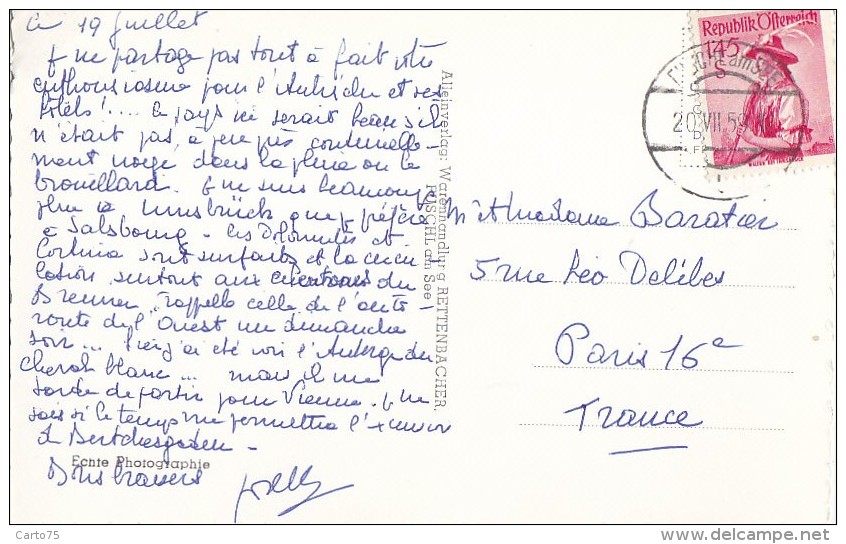 Le 19 juillet
Je ne partage pas tout à fait votre
enthousiasme pour l'Autriche et ses
hôtels !.... Ce pays ne serait beau s'il
n'était pas, à peu près continuelle-
ment noyé dans la pluie ou le
brouillard. Je me suis beaucoup
plue à Innsbrück que je préfère
à Salsbourg. Les Dolomites et
Cortina sont surfaits et la circu-
lation surtout aux environs du
Brenner rappelle celle de l'auto-
route de l'Ouest un dimanche
soir... Hier j'ai été voir l'Auberge du
cheval blanc... mais il me
tarde de partir pour Vienne. Je ne
sais si le temps me permettra l'excursion
à Bertchesgaden -
Bons baisers
Echte Photographie
Alleinverlag: Warenhandlung RETTENBACHER,
FUSCHL am See
Republik Österreich
145
S
20.VII.59
M et Madame Baratier
5 rue Léo Delibes
Paris 16e
France
Carto75
www.delcampe.net